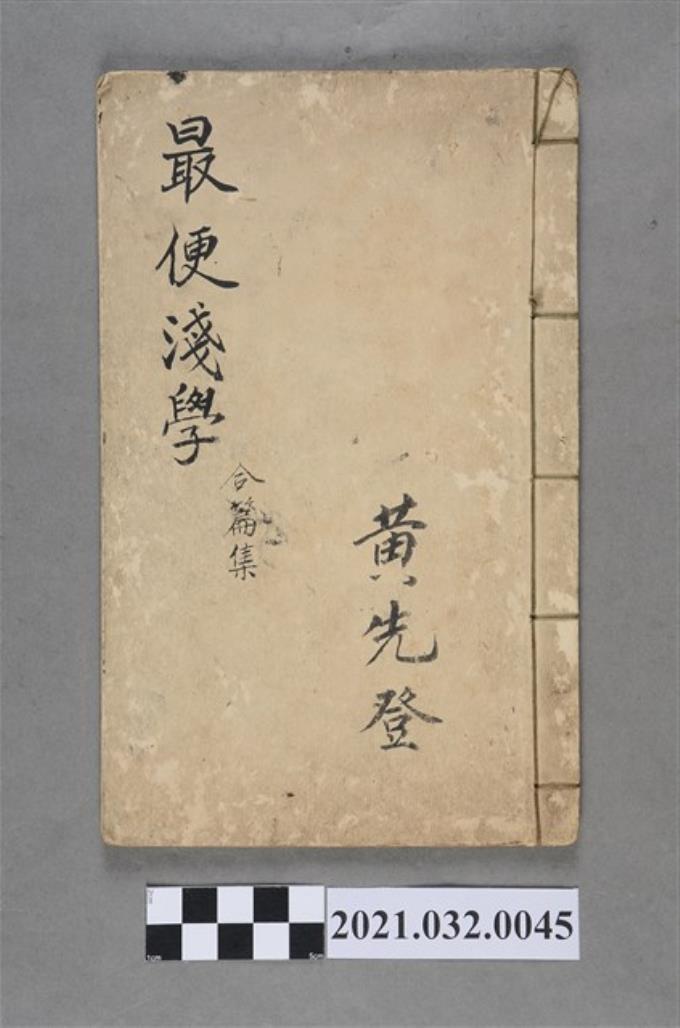 最便淺學
合篇集
黃先登
2021.032.0045
1cm
5cm